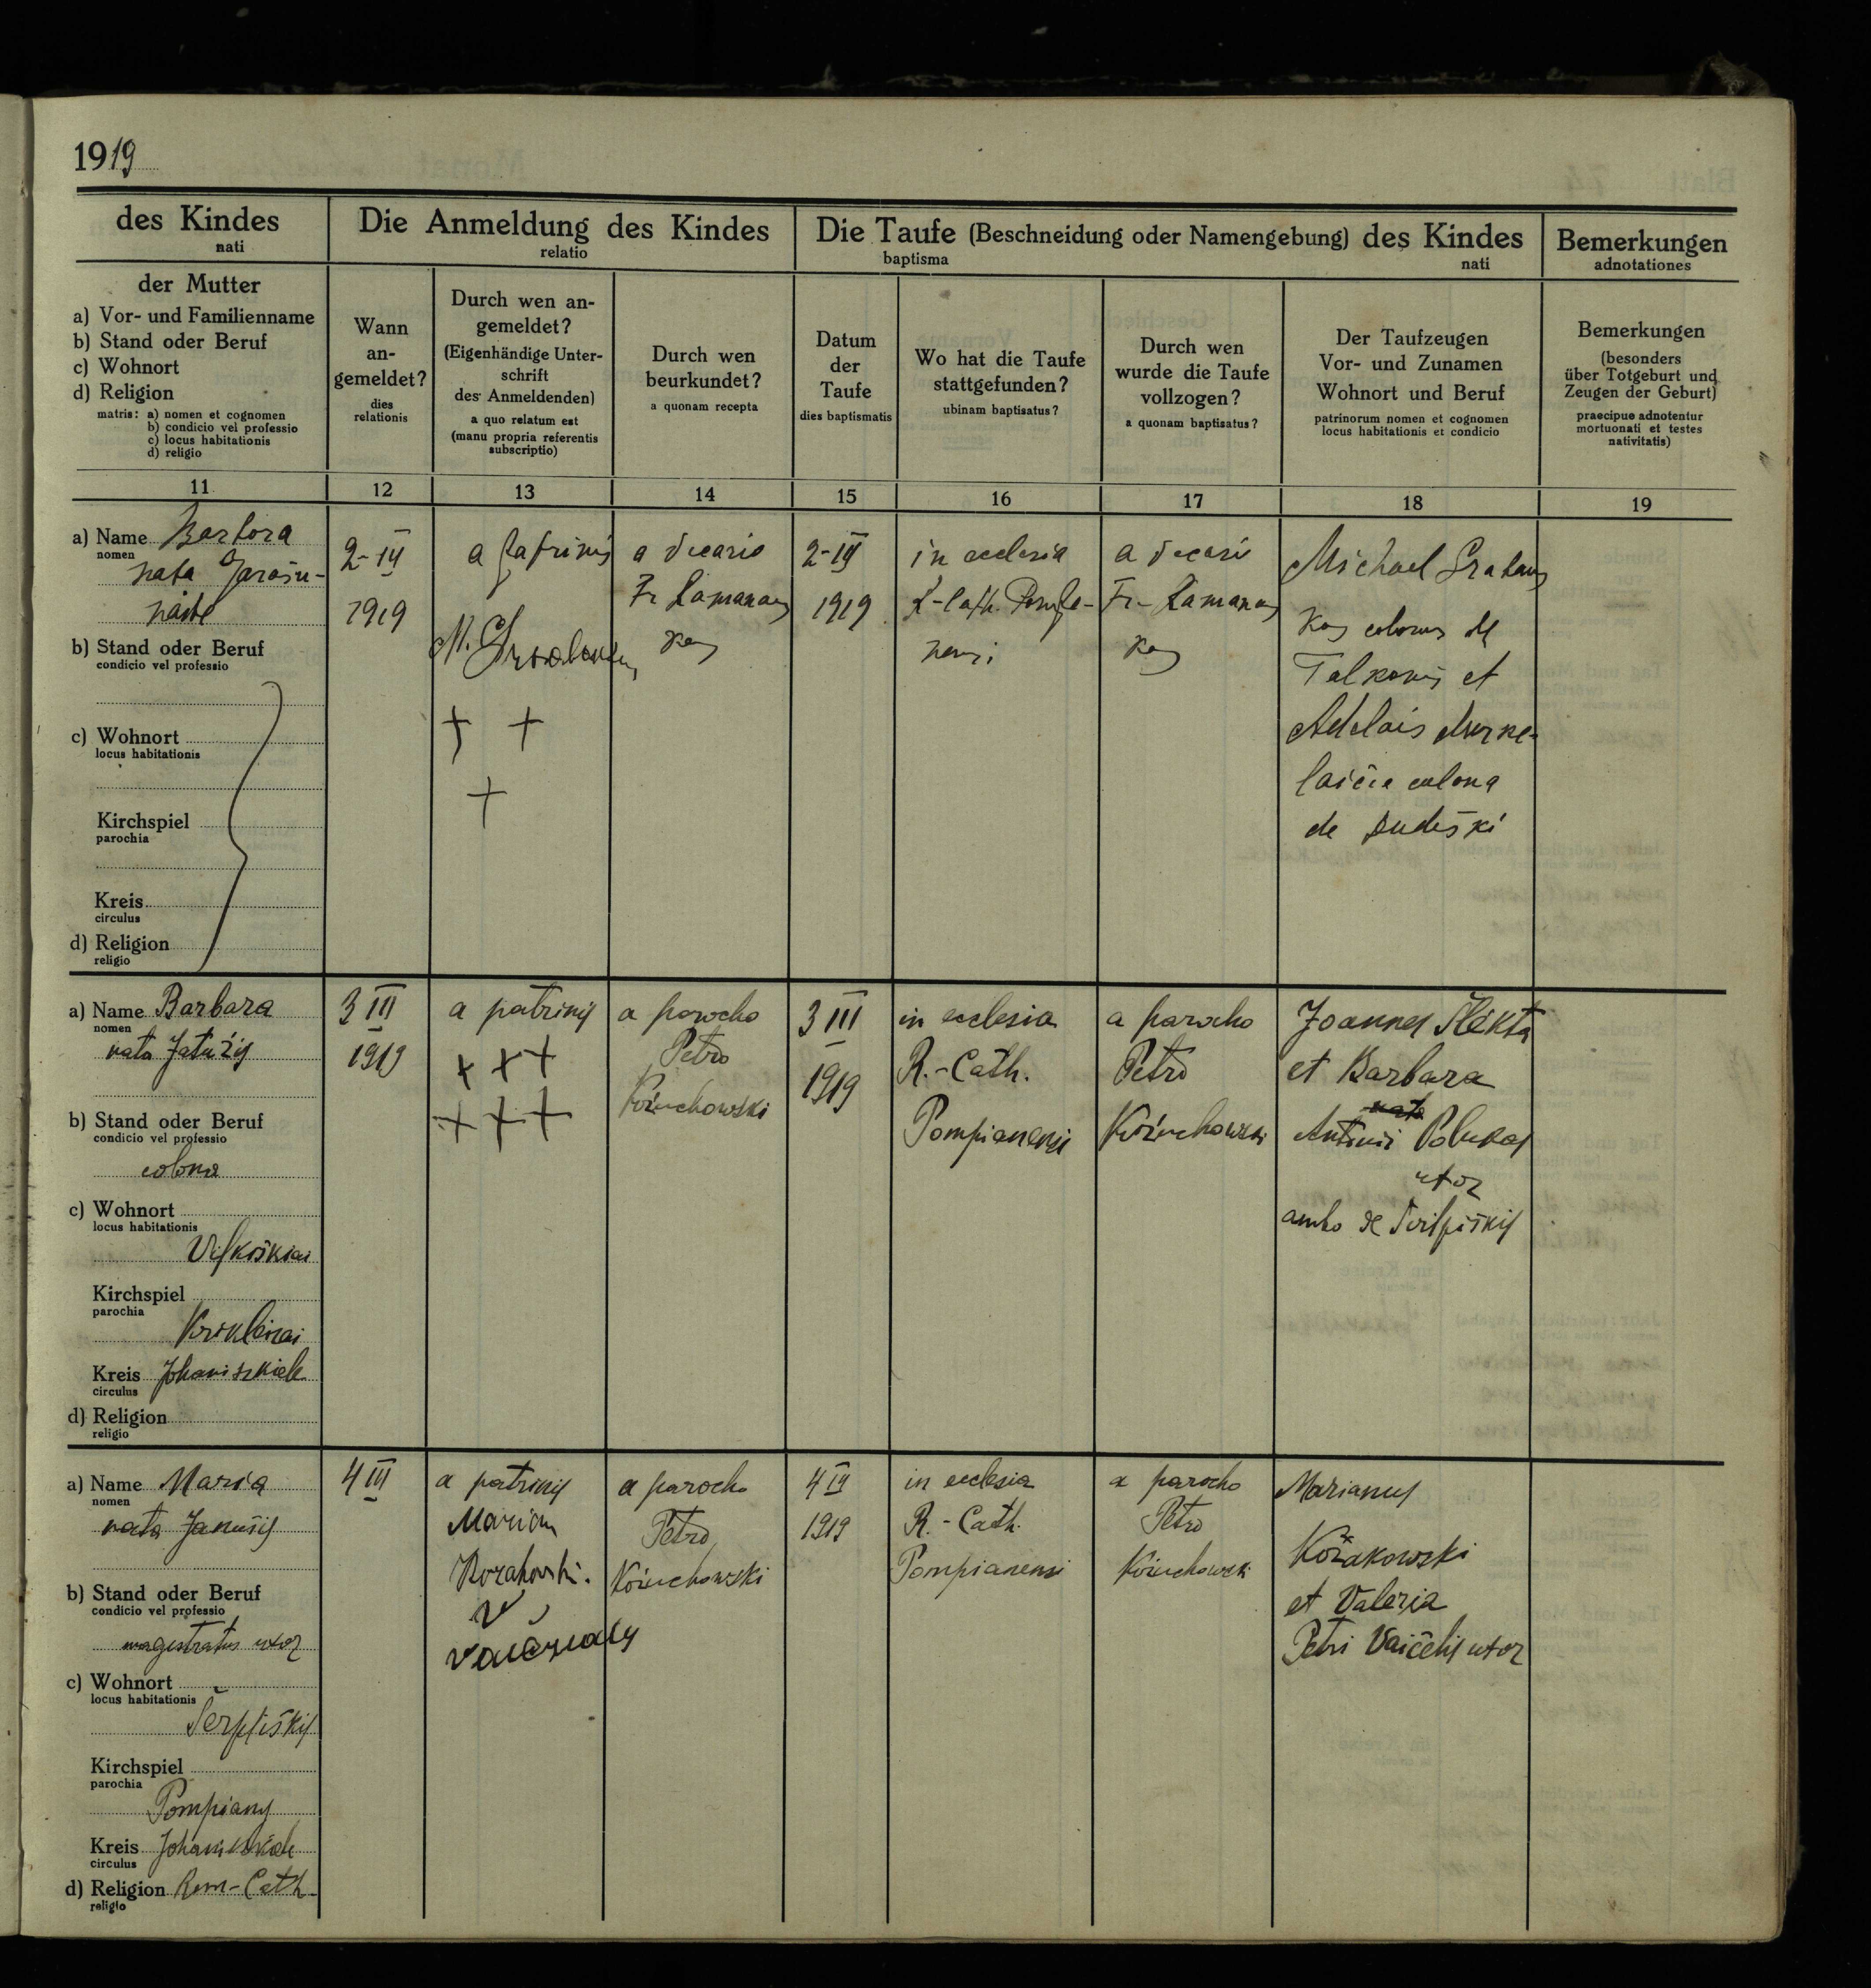 1919
des Kindes
nati
Die Anmeldung des Kindes
relatio
Die Taufe (Beschneidung oder Namengebung) des Kindes
baptisma nati
Bemerkungen
adnotationes
der Mutter
a) Vor- und Familienname
b) Stand oder Beruf
c) Wohnort
d) Religion
matris: a) nomen et cognomen
b) condicio vel professio
c) locus habitationis
d) religio
Wann
an-
gemeldet?
dies
relationis
Durch wen an-
gemeldet?
(Eigenhändige Unter-
schrift
des Anmeldenden)
a quo relatum est
(manu propria referentis
subscriptio)
Durch wen
beurkundet?
a quonam recepta
Datum
der
Taufe
dies baptismatis
Wo hat die Taufe
stattgefunden?
ubinam baptisatus?
Durch wen
wurde die Taufe
vollzogen?
a quonam baptisatus?
Der Taufzeugen
Vor- und Zunamen
Wohnort und Beruf
patrinorum nomen et cognomen
locus habitationis et condicio
Bemerkungen
(besonders
über Totgeburt und
Zeugen der Geburt)
praecipue adnotentur
mortuonati et testes
nativitatis)
11 12 13 14 15 16 17 18 19
a) Name Barbora
nomen
nata
b) Stand oder Beruf
condicio vel professio
c) Wohnort
locus habitationis
Kirchspiel
parochia
Kreis
circulus
d) Religion
religio
2-III
1919
a patrinis
M.
+ +
+
a vicario
Fr. Ramanaus
kas
2-III
1919
in ecclesia
R-Cath. Pompia-
nensi
a vicario
Fr. Ramanaus
kas
Michael
kas colonus de
Talkonis et
Adelais
colona
de
a) Name Barbara
nomen
nata
b) Stand oder Beruf
condicio vel professio
colona
c) Wohnort
locus habitationis
Kirchspiel
parochia
Kriklinai
Kreis Johaniszkiele
circulus
d) Religion
religio
3 III
1919
a patrinis
+ + +
+ + +
a parocho
Petro
Kožuchowski
3 III
1919
in ecclesia
R.-Cath.
Pompianensi
a parocho
Petro
Kožuchowski
Joannes Šlekta
et Barbara
nata
Antonii
uxor
ambo de
a) Name Maria
nomen
nata Janušis
b) Stand oder Beruf
condicio vel professio
magistratus uxor
c) Wohnort
locus habitationis
Kirchspiel
parochia
Pompiany
Kreis Johaniszkiele
circulus
d) Religion Rom-Cath.
religio
4 III
a patrinis
Marian
Kozakowski.
a parocho
Petro
Kožuchowski
4 III
1919
in ecclesia
R.-Cath.
Pompianensi
a parocho
Petro
Kožuchowski
Marianus
Kožakowski
et Valeria
Petri Vaičelis uxor